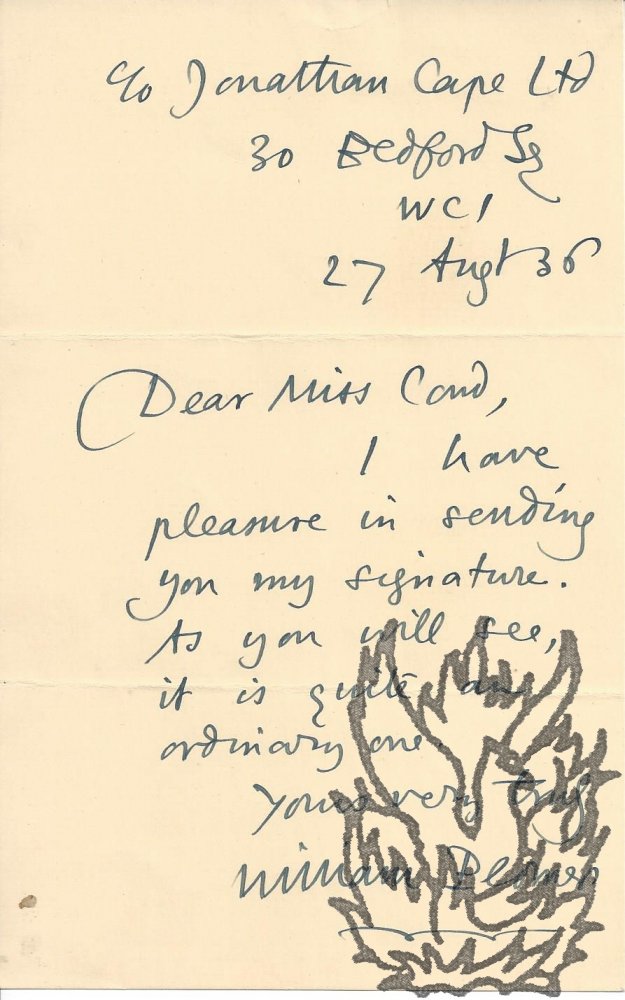 c/o Jonathan Cape Ltd
30 Bedford Sq
WC1
27 Augt 36
Dear Miss Cond,
I have
pleasure in sending
you my signature.
As you will see,
it is quite an
ordinary one.
Yours very truly
William Plomer